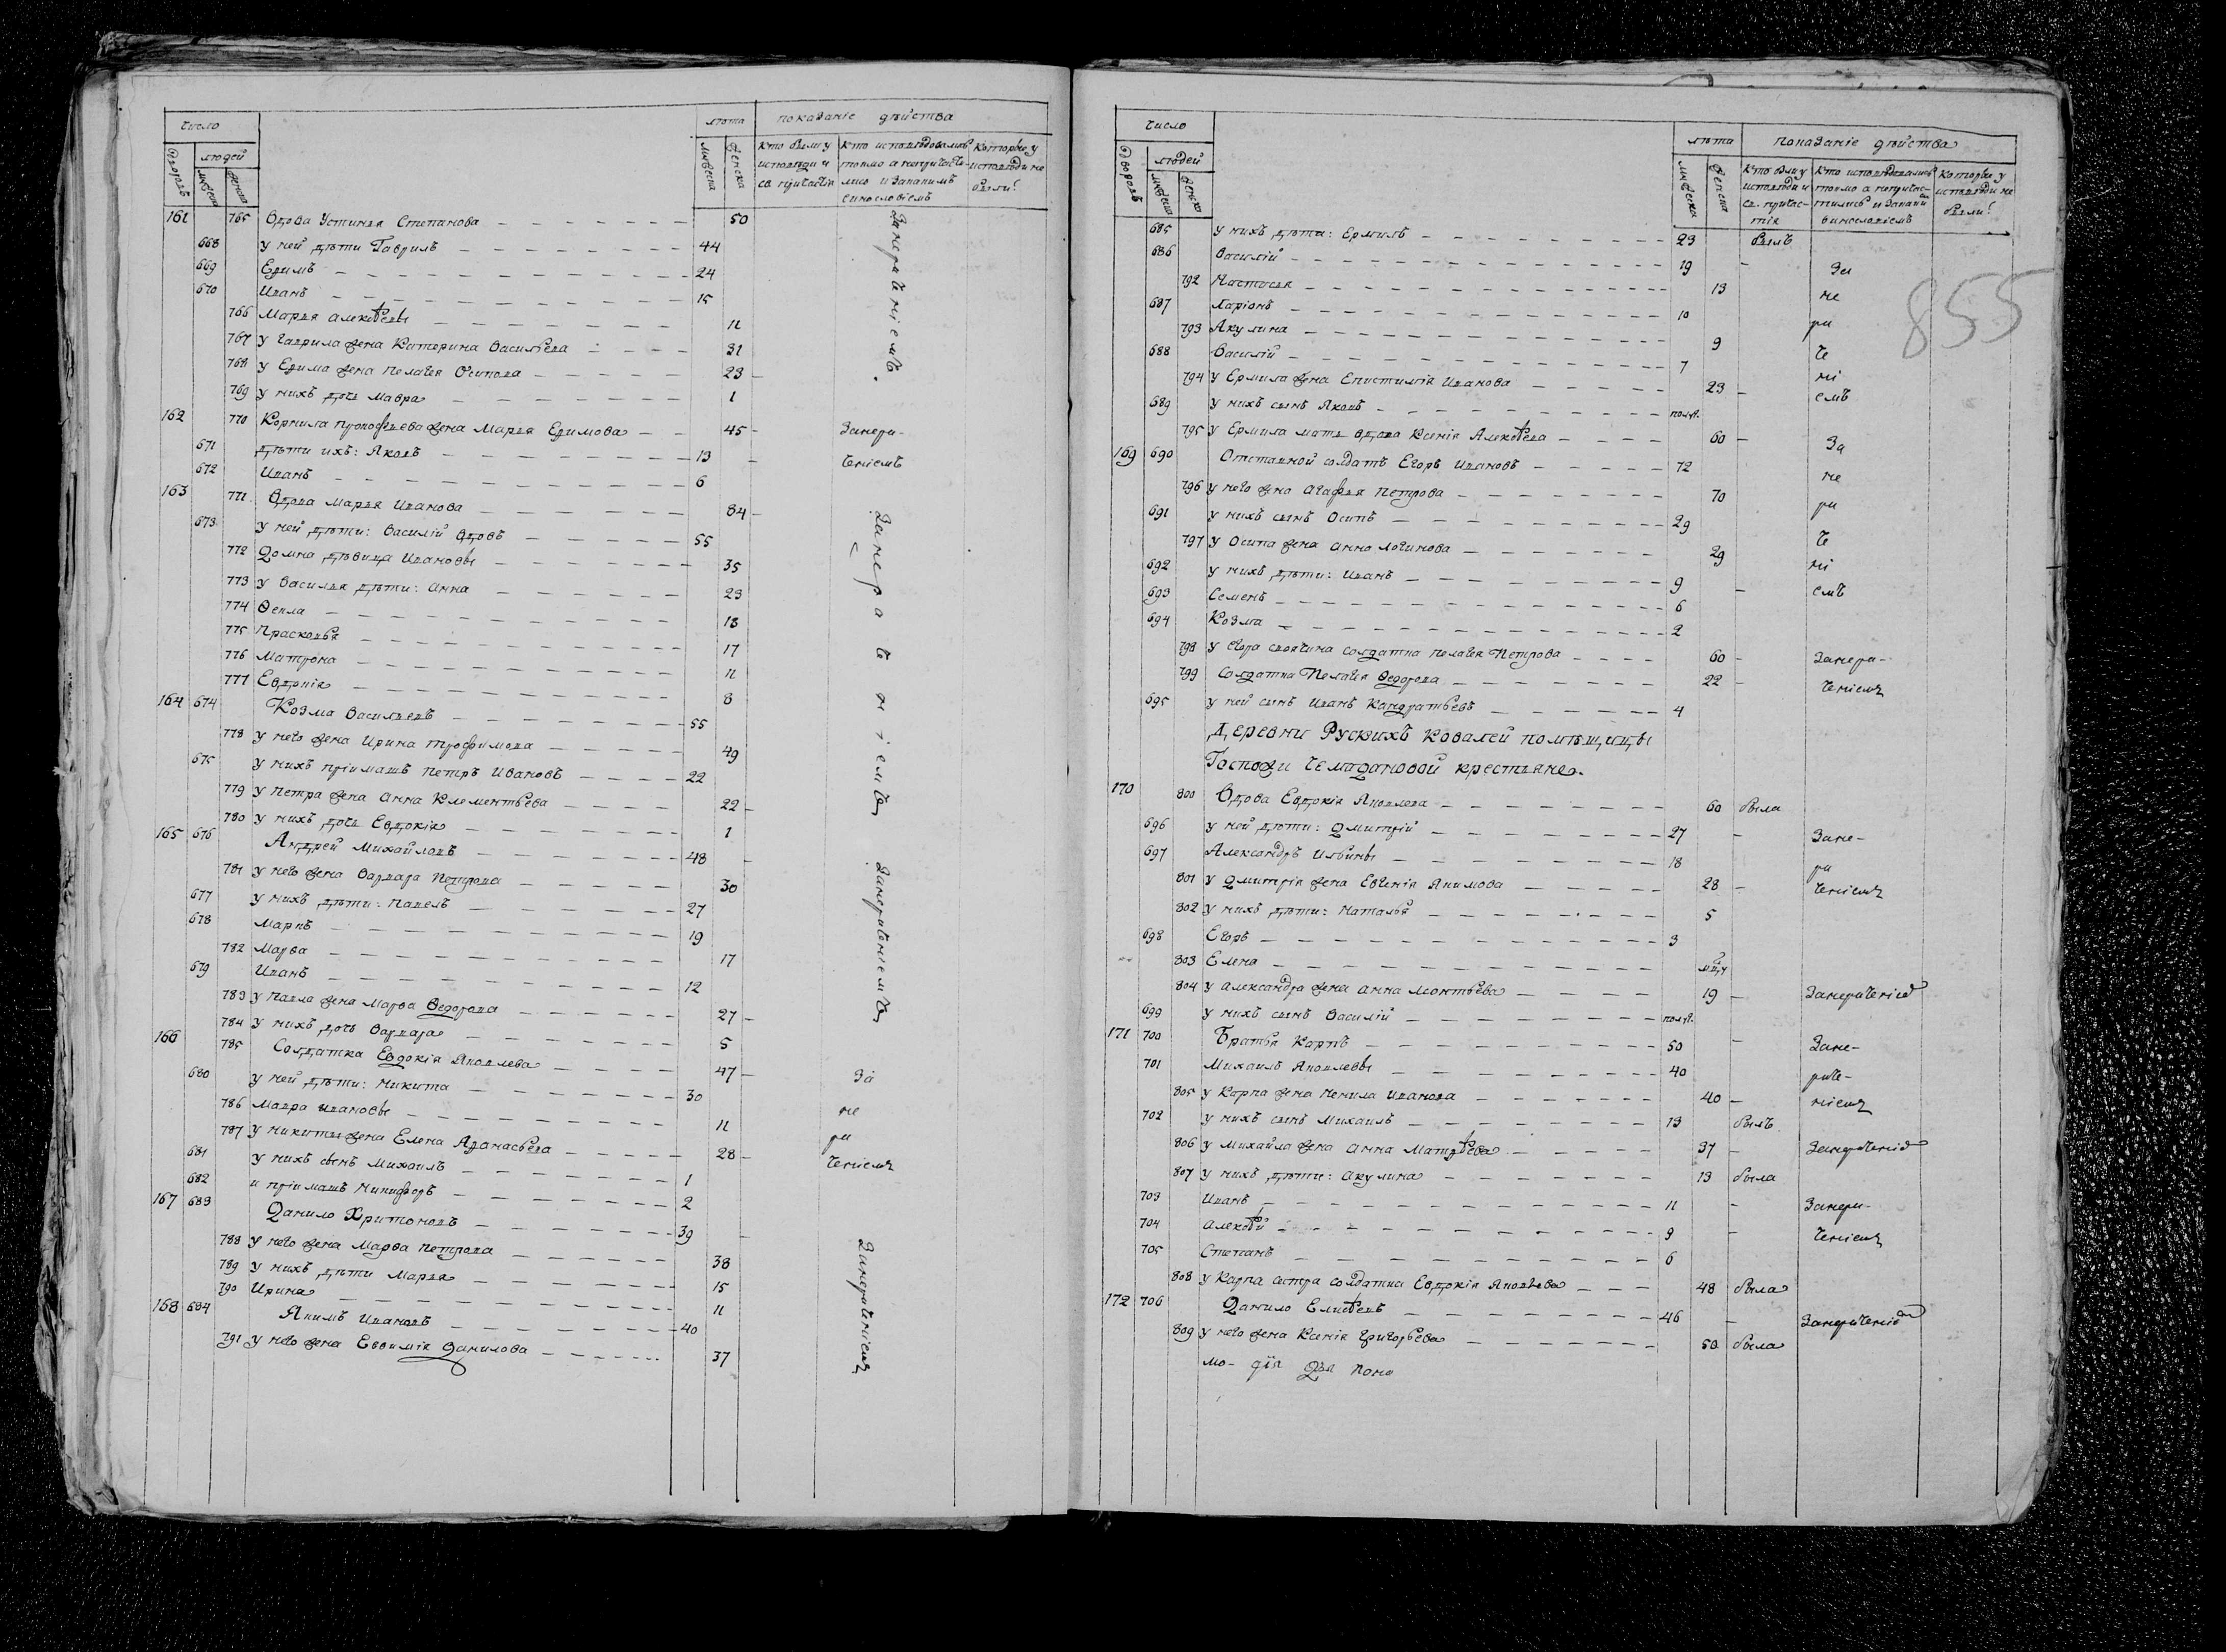 число
лѣта
показаніе дѣйства
дворовъ
людей
мужеска
женска
мужеска
женска
кто былъ у исповѣди и св. причастія
кто исповѣдовались токмо а непричастились и запакимъ винословіемъ
которые у исповѣди не были?
161 765 Вдова Устинья Степанова 50
668 у ней дѣти Гаврилъ 44
669 Ефимъ 24
670 Иванъ 15
766 Марья Алексѣевы 11
767 у Гаврила жена Катерина Васильева 31
768 у Ефима жена Пелагея Осипова 23
769 у нихъ дочь Мавра 1
Занерачениемъ.
162 770 Корнила Прокофьева жена Марья Ефимова 45 Занера-
671 дѣти ихъ: Яковъ 13 ченіемъ
672 Иванъ 6
163 771 Вдова Марья Иванова 84
673 у ней дѣти: Василій вдовъ 55
772 Домна дѣвица Ивановы 35
773 у Василья дѣти: Анна 23
774 Фекла 18
775 Прасковья 17
776 Матрона 11
777 Евдокія 8
164 674 Козма Васильевъ 55
778 у него жена Ирина Трофимова 49
675 у нихъ пріимашъ Петръ Ивановъ 22
779 у Петра жена Анна Клементьева 22
780 у нихъ дочь Евдокія 1
Занераченіемъ
165 676 Андрей Михайловъ 48
781 у него жена Варвара Петрова 30
677 у нихъ дѣти: Павелъ 27
678 Маркъ 19
782 Марфа 17
679 Иванъ 12
783 у Павла жена Марфа Федорова 27
784 у нихъ дочь Варвара 5
Занераченіемъ
166 785 Солдатка Евдокія Яковлева 47 За
680 у ней дѣти: Никита 30
786 Мавра Ивановы 11 не
787 у Никиты жена Елена Афанасьева 28 ра
681 у нихъ сынъ Михаилъ 1 ченіемъ
682 и пріимашъ Никифоръ 2
167 683 Данило Харитоновъ 39
788 у него жена Марфа Петрова 38
789 у нихъ дѣти Марья 15
790 Ирина 11
168 684 Якимъ Ивановъ 40
791 у него жена Евфимія Данилова 37
Занераченіемъ
855
число
лѣта
показаніе дѣйства
дворовъ
людей
мужеска
женска
мужеска
женска
кто былъ у исповѣди и св. причастія
кто исповѣдовались токмо а непричастились и запакимъ винословіемъ
которые у исповѣди не были?
685 у нихъ дѣти: Ермилъ 23 былъ
686 Василій 19 За
792 Настасья 13 не
687 Ларіонъ 10 ра
793 Акулина 9 че
688 Василій 7 ні
794 у Ермила жена Епистимія Иванова 23 емъ
689 у нихъ сынъ Яковъ полуг.
795 у Ермила мать вдова Ксенія Алексѣева 60 За
169 690 Отставной солдатъ Егоръ Ивановъ 72 не
796 у него жена Агафья Петрова 70 ра
691 у нихъ сынъ Осипъ 29 че
797 у Осипа жена Анна Логинова 29 ні
692 у нихъ дѣти: Иванъ 9 емъ
693 Семенъ 6
694 Козма 2
798 у Егора своячина солдатка Пелагея Петрова 60 Занера-
799 Солдатка Пелагея Федорова 22 ченіемъ
695 у ней сынъ Иванъ Кандратьевъ 4
Деревни Рускихъ Ковалей помѣщицы
Госпожи Чемадановой крестьяне.
170 800 Вдова Евдокія Яковлева 60 была
696 у ней дѣти: Дмитрій 27 Зане-
697 Александръ Ильины 18 ра
801 у Дмитрія жена Евгенія Якимова 28 ченіемъ
802 у нихъ дѣти: Наталья 5
698 Егоръ 3
803 Елена
804 у Александра жена Анна Леонтьева 19 Занераченіе
699 у нихъ сынъ Василій полуг.
171 700 Братья Карпъ 50 Зане-
701 Михаилъ Яковлевы 40 раче-
805 у Карпа жена Ненила Иванова 40 ніемъ
702 у нихъ сынъ Михаилъ 13 былъ
806 у Михаила жена Анна Матвѣева 37 Занераченіе
807 у нихъ дѣти: Акулина 13 была
703 Иванъ 11 Занера-
704 Алексѣй 9 ченіемъ
705 Степанъ 6
808 у Карпа сестра солдатка Евдокія Яковлева 48 была
172 706 Данило Елисѣевъ 46 Занераченіе
809 у него жена Ксенія Григорьева 50 была